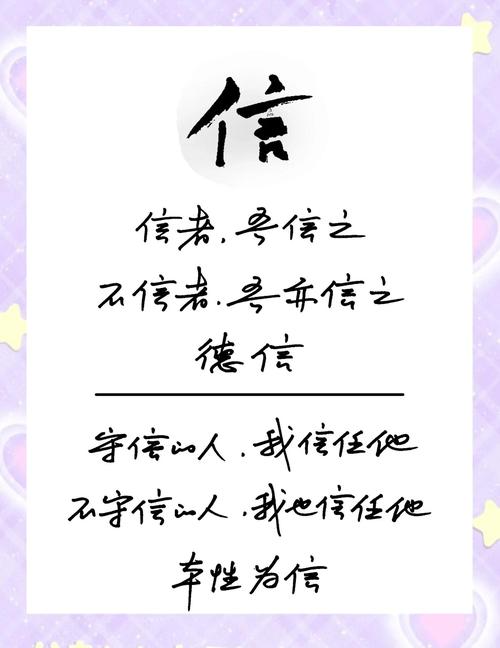 信
信者,吾信之
不信者,吾亦信之
德信
守信的人,我信任他
不守信的人,我也信任他
本性为信